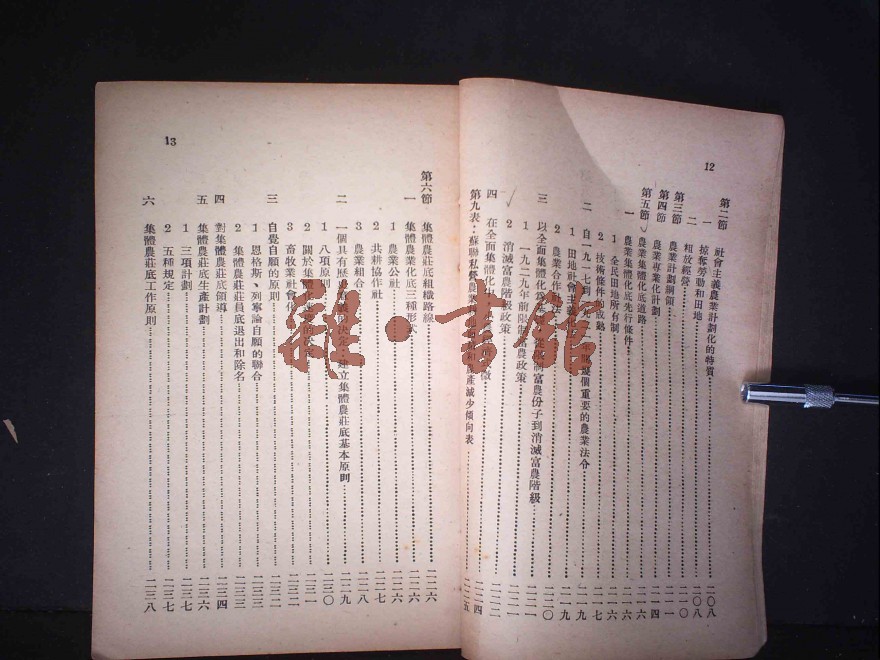 12
第二節 社會主義農業計劃化的特質 二〇八
一 掠奪勞動和田地 二〇八
二 粗放經營 二一〇
第三節 農業計劃綱領 二一一
第四節 農業專業化計劃 二一四
第五節 農業集體化底道路 二一六
一 農業集體化底先行條件 二一六
1 全民田地所有制 二一六
2 技術條件底成熟 二一七
二 自一九一七到一九 幾個重要的農業法令 二一九
1 田地社會主義化 二一九
2 農業合作社法 二二〇
三 以全面集體化為 從限制富農份子到消滅富農階級 二二〇
1 一九二九年前限制富農政策 二二一
2 消滅富農階級政策 二二二
四 在全面集體化中 二二四
第九表:蘇聯私營農 和農產減少傾向表 二二五
13
第六節 集體農莊底組織路線 二二六
一 集體農業化底三種形式 二二六
1 農業公社 二二六
2 共耕協作社 二二七
3 農業組合 二二八
二 一個具有歷史 決定:建立集體農莊底基本原則 二二九
1 八項原則 二三〇
2 關於集體 的決定 二三一
3 畜牧業社會化 二三二
三 自覺自願的原則 二三二
1 恩格斯、列寧論自願的聯合 二三三
2 集體農莊莊員底退出和除名 二三三
四 對集體農莊底領導 二三四
五 集體農莊底生產計劃 二三六
1 三項計劃 二三七
2 五種規定 二三七
六 集體農莊底工作原則 二三八
雜·書館